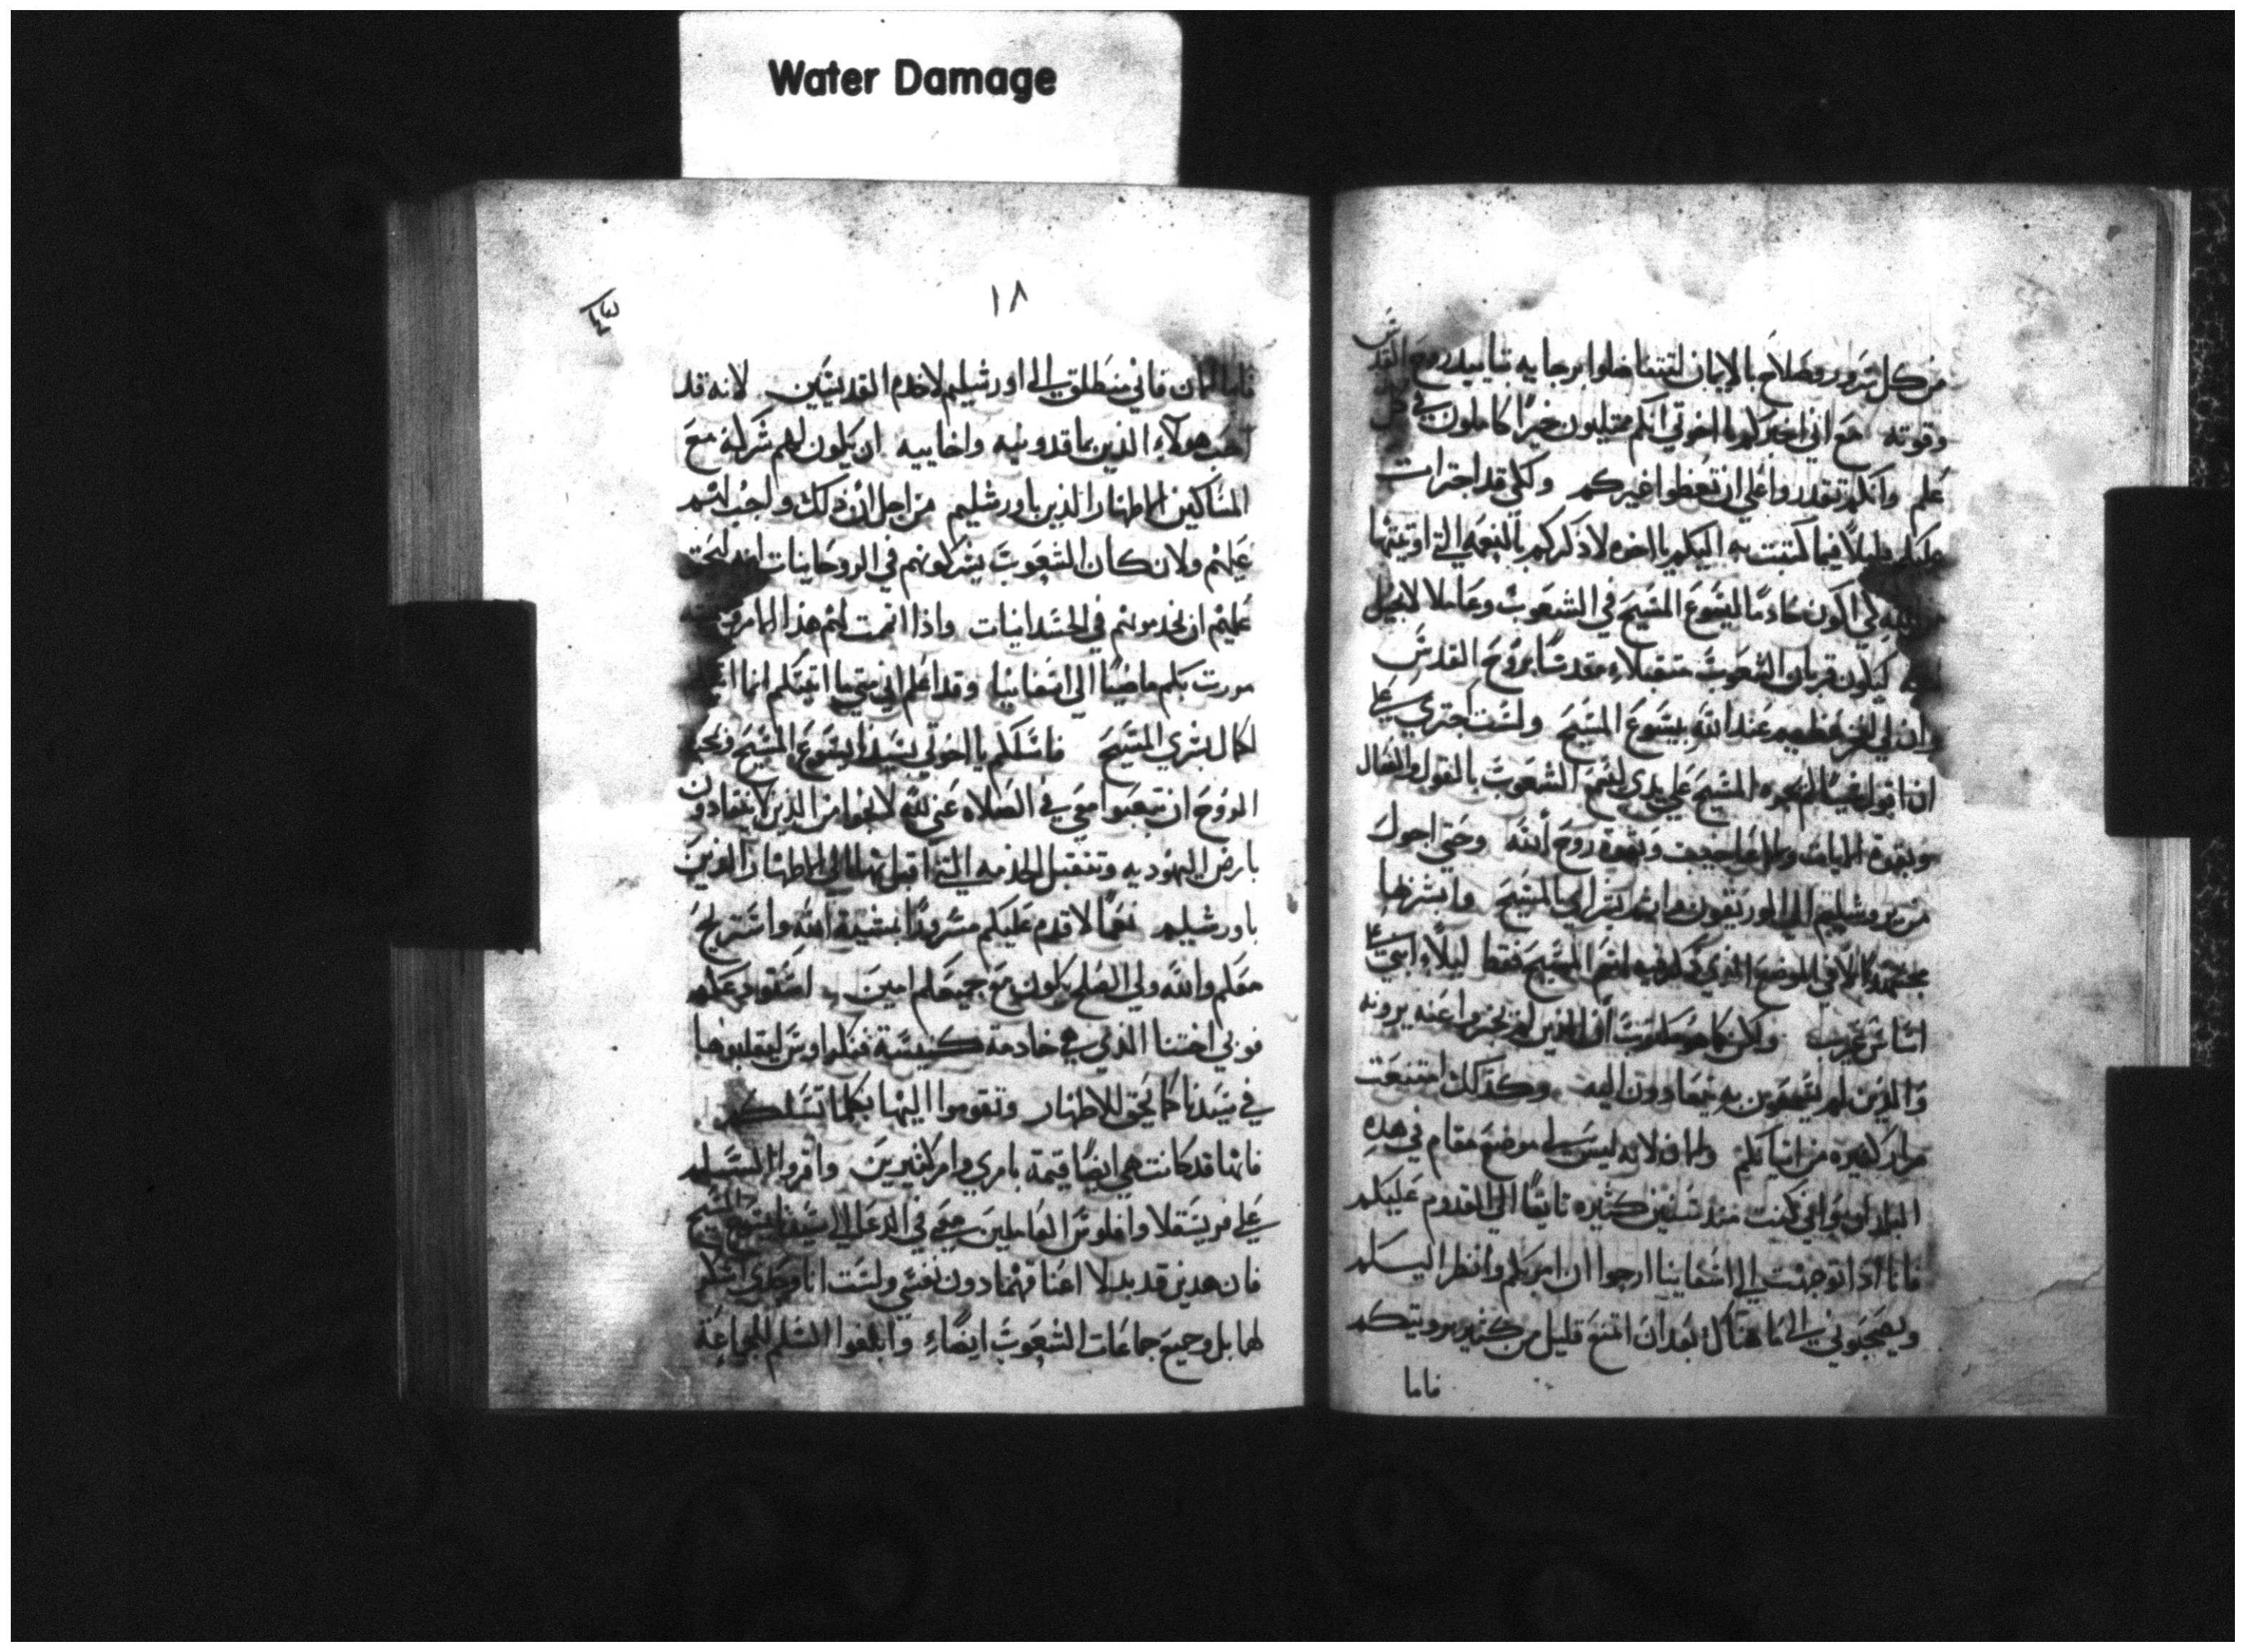 Water Damage
من كل سرور وصلاح بالايمان لتتفاضلوا برجايه بتاييد روح القدس
وقوته مع اني اخبركم يا اخوتي انكم ممتليون خيرًا كاملون في كل
علم وانكم تقدروا علي ان تعظوا غيركم ولكني قد اجترات
عليكم قليلًا فيما كتبت به اليكم يا اخوه لاذكركم بالنعمه التي اوتيتها
من الله كي اكون خادمًا ليسوع المسيح في الشعوب وعاملا لانجيل
كيكون قربان الشعوب متقبلاء مقدسًا بروح القدس
وان لي لفخر عظيم عند الله بيسوع المسيح ولست اجتري علي
ان اقول شيًا لم يجره المسيح علي يدي لسمع الشعوب بالقول والفعال
وبقوة الايات والاعاجيب وبقوة روح الله وحتي اجول
من يروشليم الي الوريقون بشراي بالمسيح وابشرها
مجتهدًا لا في الموضع الذي ذكر فيه اسم المسيح فقط ليلاء ابني علي
اساس غريب ولكن كما هو مكتوب ان الذين لم يخبروا عنه يرونه
والذين لم يسمعون به ينقادون اليه وكذلك امتنعت
مرار كثيره من اتيانكم والان لانه ليس لي موضع مقام في هذه
البلدان واني كنت منذ سنين كثيره تايقًا الي القدوم عليكم
فانا اذا توجهت الي اسفانيا ارجوا ان امر بكم وانظر اليكم
ويصحبوني الي ما هناك بعد ان اتمتع قليل من كثير برويتكم
فاما
١٨
فاما الان فاني منطلق الي اورشليم لاخدم القديسين لانه قد
احب هولاء الذين بماقدونيه واخاييه ان يكون لهم شركة مع
المساكين الاطهار الذين باورشليم من اجل ان ذلك واجب لهم
عليهم ولان كان الشعوب يشركونهم في الروحانيات انه ليحق
عليهم ان يخدمونهم في الجسدانيات واذا اتممت لهم هذا الامر
مررت بكم ماضيًا الي اسفانيا وقد اعلم اني متي ما اتيتكم انما
لكمال بشري المسيح فاسلكم يا اخوتي بسيدنا يسوع المسيح وبحب
الروح ان تتعبوا معي في الصلاه عني لله لانجوا من الذين لا ينقادون
بارض اليهوديه وتتقبل الخدمه التي اقبل بها الي الاطهار الذين
باورشليم نعمًا لاقدم عليكم مسرورًا بمشية الله واستريح
معكم والله ولي السلم يكون مع جميعكم امين استودعكم
فوبي اختنا الذي هي خادمة كنيسة قنكراوس لتقبلوها
في سيدنا كما يحق للاطهار وتقوموا اليها بكلما تسلكم
فانها قد كانت هي ايضًا قيمة بامري وامر كثيرين واقروا السلم
علي فريسقلا واقلوس العاملين معي في الدعا الي يسوع المسيح
فان هدين قد بدلا اعناقهما دون نفسي ولست انا وحدي اشكر
لهما بل وجميع جماعات الشعوب ايضًاء وابلغوا السلم للجماعة